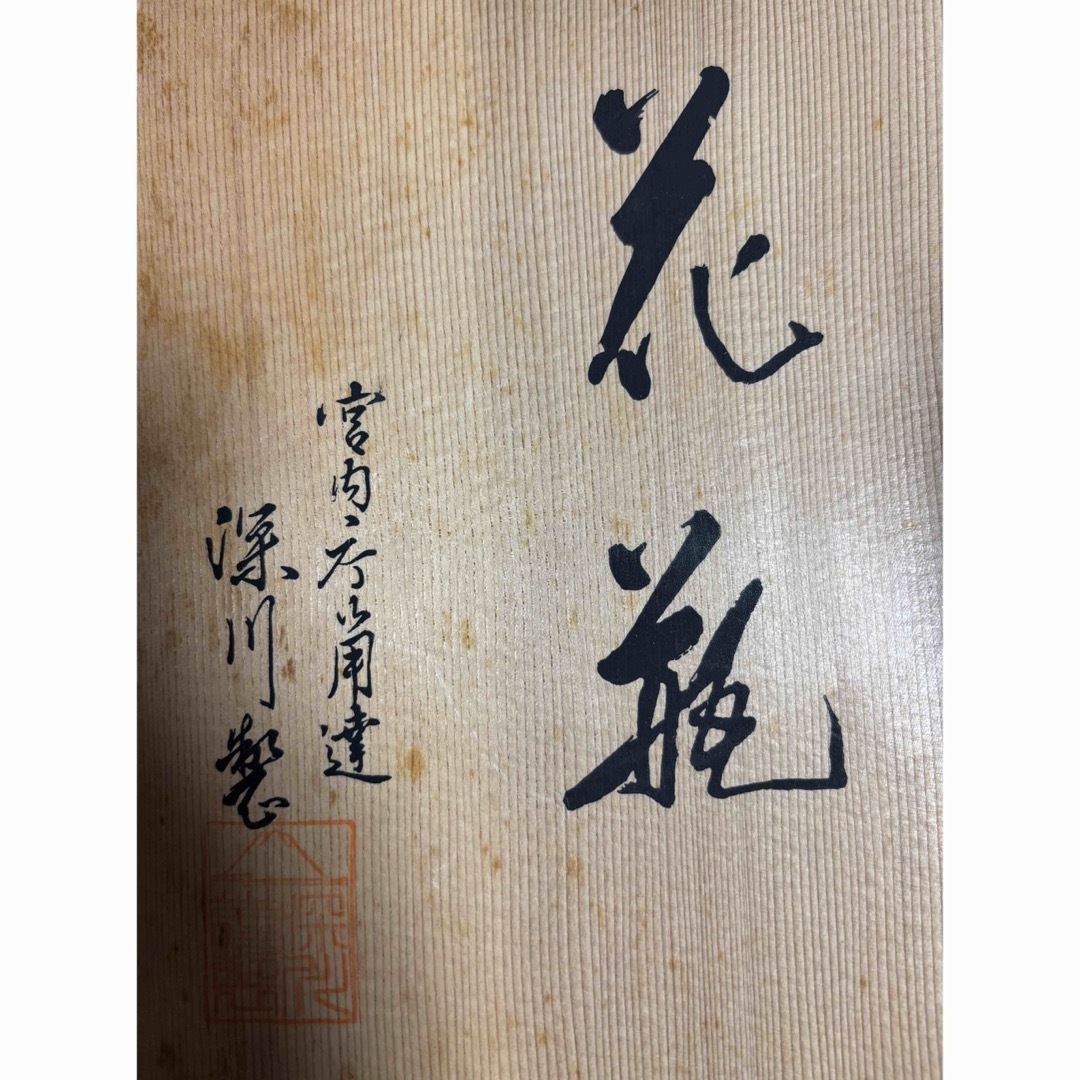 花瓶
宮内庁御用達
深川製
深川